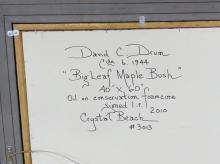 David C. Drum
Cdn b. 1944
"Big Leaf Maple Bush"
40" x 60"
Oil on conservation foamcore
signed l.r.
2010
Crystal Beach
#3013